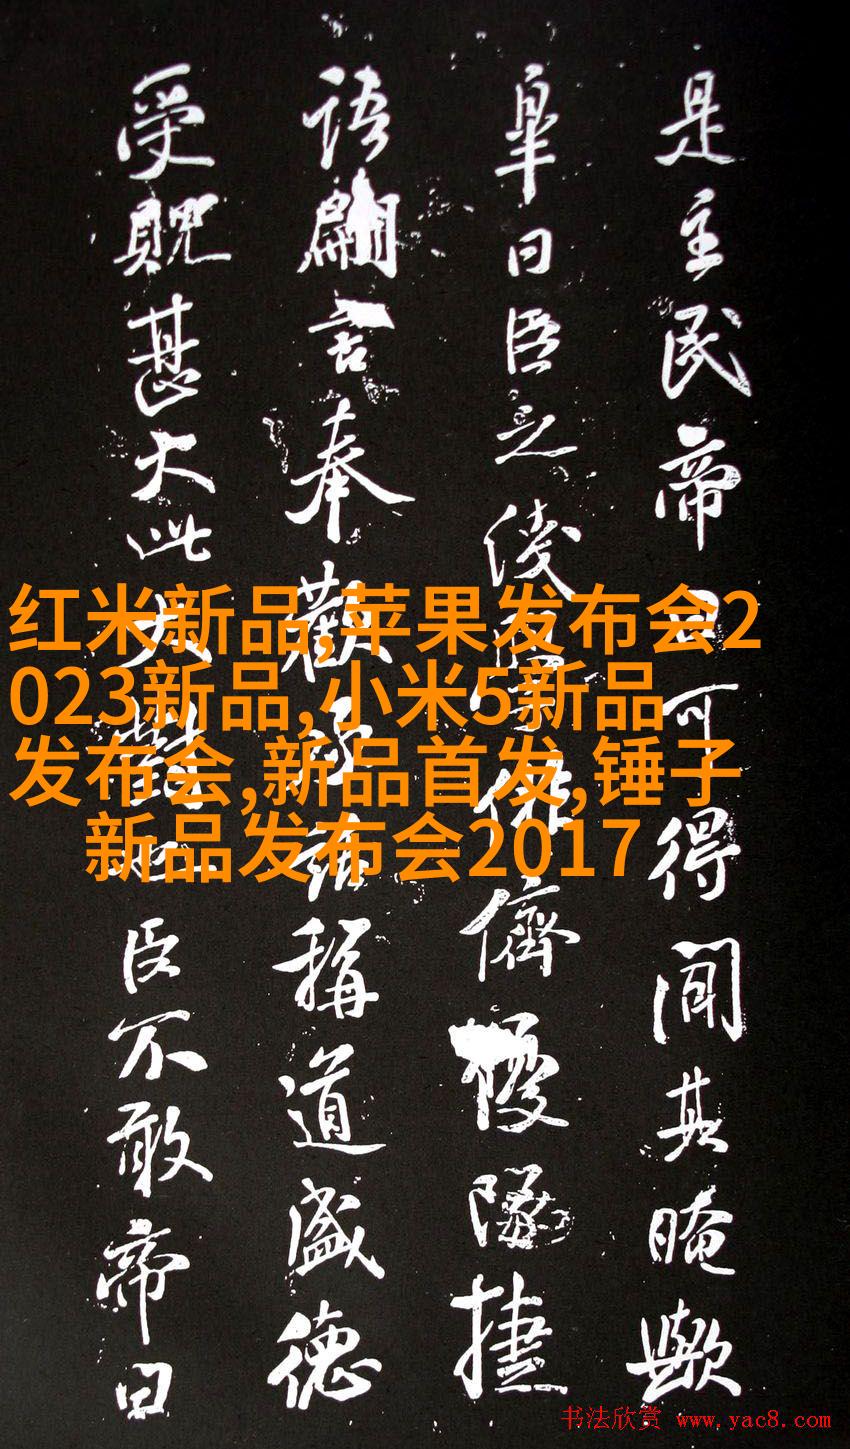 是主民帝曰可得闻其晻欤
皋曰臣之
儕優隊捷
语翩言奉觀
稱道盛德
受貺甚大此大對也臣不敢帝曰
红米新品,苹果发布会2
023新品,小米5新品
发布会,新品首发,锤子
新品发布会2017
书法欣赏 www.yac8.com